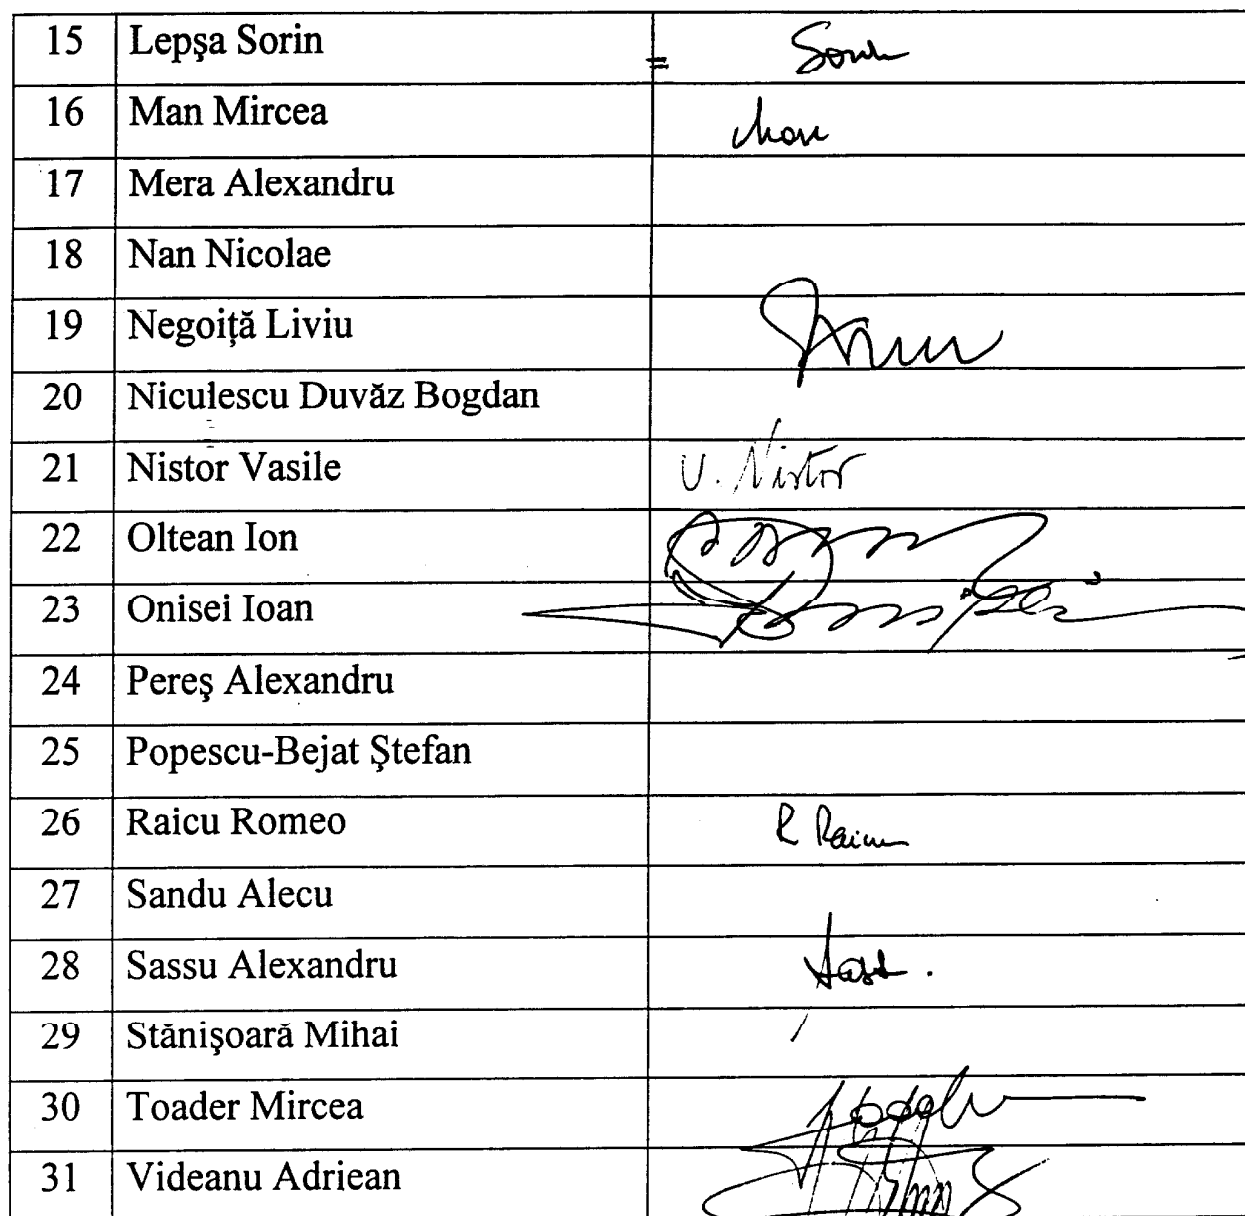 15 Lepşa Sorin = Sorin
16 Man Mircea Man
17 Mera Alexandru
18 Nan Nicolae
19 Negoiţă Liviu
20 Niculescu Duvăz Bogdan
21 Nistor Vasile V. Nistor
22 Oltean Ion
23 Onisei Ioan
24 Pereş Alexandru
25 Popescu-Bejat Ştefan
26 Raicu Romeo R Raicu
27 Sandu Alecu
28 Sassu Alexandru
29 Stănişoară Mihai
30 Toader Mircea
31 Videanu Adriean